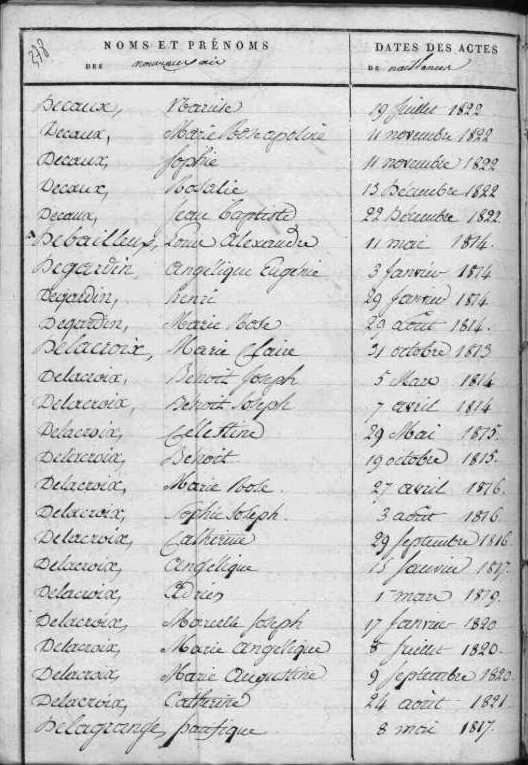 378
NOMS ET PRÉNOMS DATES DES ACTES
DES nouveaux nés DE naissances
Decaux, 19 Juillet 1822
Decaux, Marie Rose apoline 11 novembre 1822
Decaux, Sophie 11 novembre 1822
Decaux, Rosalie 13 Décembre 1822
Decaux, Jean Baptiste 22 Décembre 1822.
Debailleux, Louis Alexandre 11 mai 1814.
Degardin, Angélique Eugénie 3 Janvier 1814
Degardin, henri 29 Janvier 1814.
Degardin, Marie Rose 29 août 1814.
Delacroix, Marie Claire 31 octobre 1813
Delacroix, Benoit Joseph 5 Mars 1814
Delacroix, Benoit Joseph 7 avril 1814
Delacroix, Cellestine 29 Mai 1815.
Delacroix, Benoit 19 octobre 1815.
Delacroix, Marie Rose. 27 avril 1816.
Delacroix, Sophie Joseph. 3 août 1816.
Delacroix, Catherine 29 Septembre 1816
Delacroix, Angélique 15 Janvier 1817.
Delacroix, Adrien 1 mars 1819.
Delacroix, Marcelle Joseph 17 Janvier 1820
Delacroix, Marie Angélique 8 Juillet 1820.
Delacroix, Marie Augustine 9 Septembre 1820.
Delacroix, Catherine 24 août 1821.
Delagrange, pacifique 8 mai 1817.